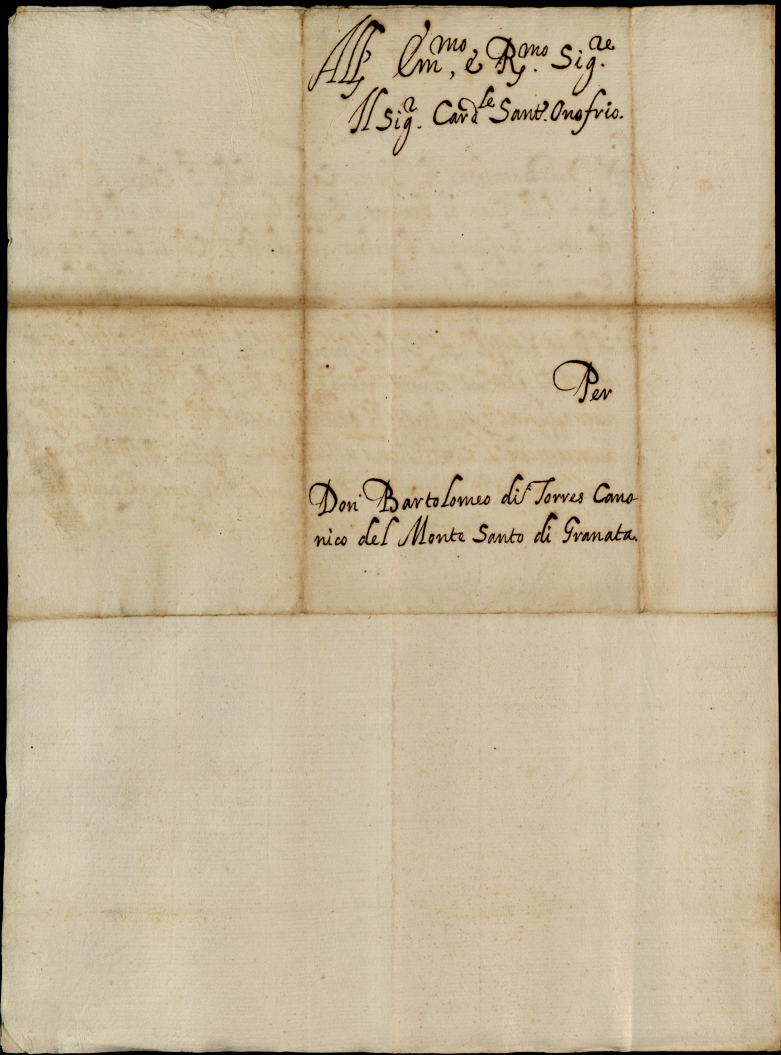 All' Em.mo, e R.mo Sig.re
Il Sig.r Card.le Sant' Onofrio.
Per
Don Bartolomeo di Torres Cano-
nico del Monte Santo di Granata.